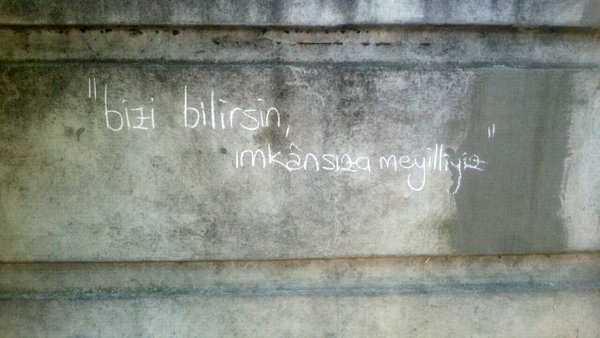 "bizi bilirsin,
imkânsıza meyilliyiz"